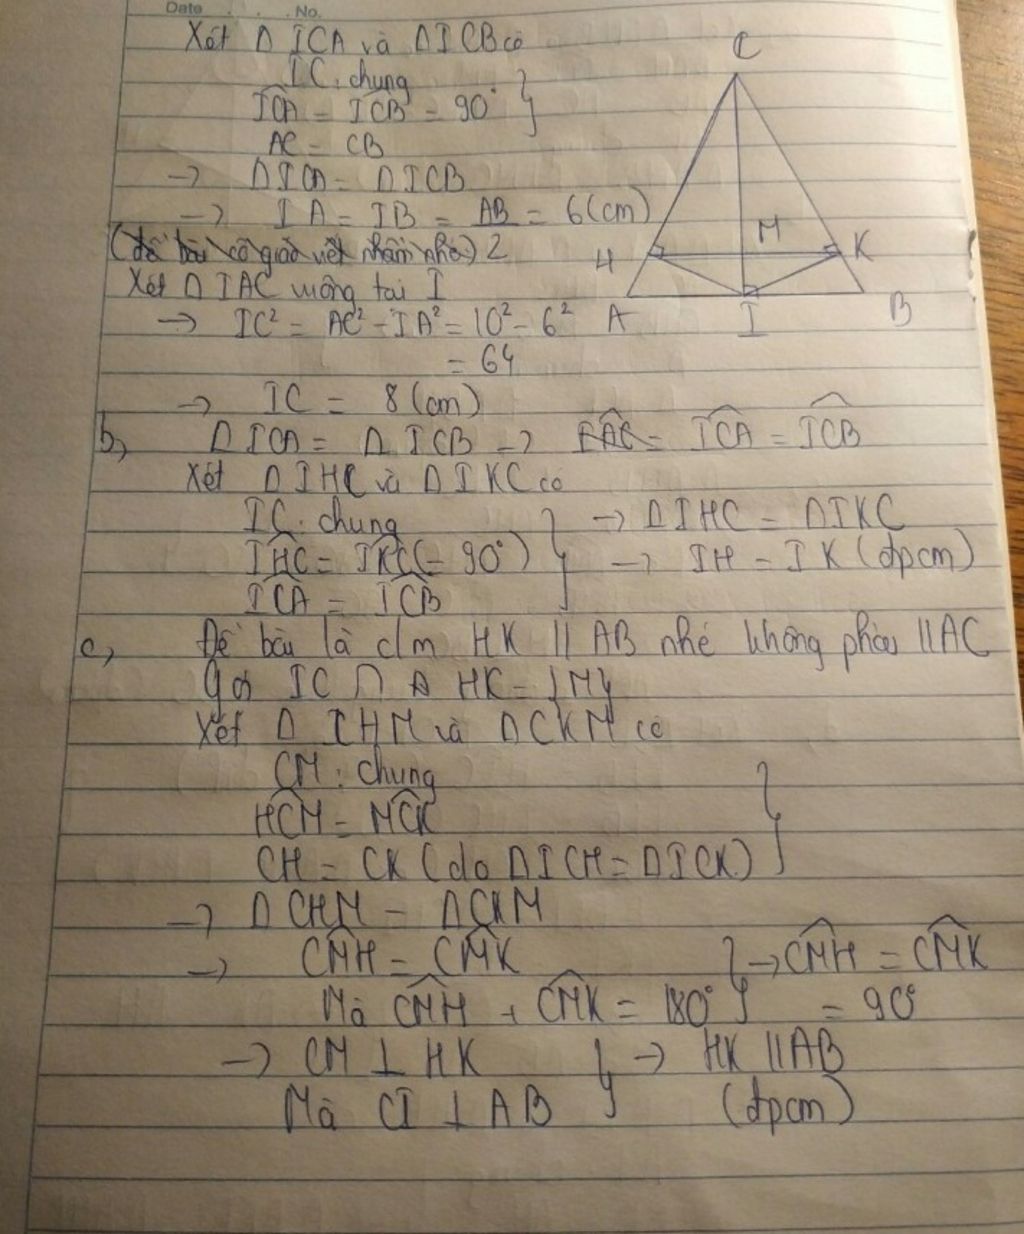 Date . . . No.
Xét Δ ICA và ΔICB có
IC: chung
ICA = ICB = 90°
AC = CB
→ ΔICA = ΔICB
→ IA = IB = AB = 6(cm)
2
Xét ΔIAC vuông tại I
→ IC² = AC² - IA² = 10² - 6²
= 64
→ IC = 8 (cm)
C
M
H
K
A
I
B
b, ΔICA = ΔICB → ICA = ICB
Xét ΔIHC và ΔIKC có
IC: chung
IHC = IKC (= 90°)
ICA = ICB
→ ΔIHC = ΔIKC
→ IH = IK (đpcm)
c, Đề bài là c/m HK // AB nhé không phải // AC
Gọi IC ∩ HK = {M}
Xét Δ IHM và ΔCKM có
CM: chung
HCM = MCK
CH = CK (do ΔICH = ΔICK)
→ ΔCHM = ΔCKM
→ CMH = CMK
Mà CMH + CMK = 180°
→ CMH = CMK
= 90°
→ CM ⊥ HK
Mà CI ⊥ AB
→ HK // AB
(đpcm)